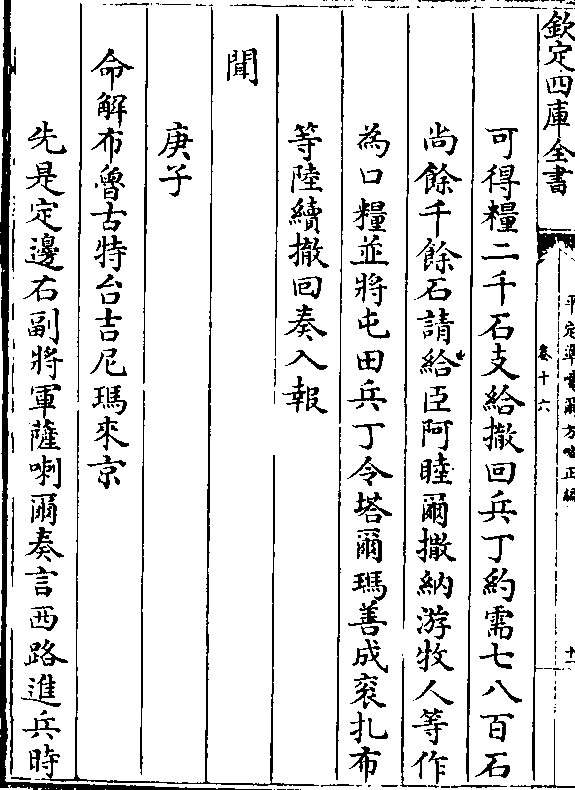 欽定四庫全書
平定準噶爾方略正編
卷十六
十一
可得糧二千石支給撤回兵丁約需七八百石
尚餘千餘石請給臣阿睦爾撒納游牧人等作
為口糧並將屯田兵丁令塔爾瑪善成衮扎布
等陸續撤回奏入報
聞
庚子
命解布魯古特台吉尼瑪來京
先是定邊右副將軍薩喇爾奏言西路進兵時